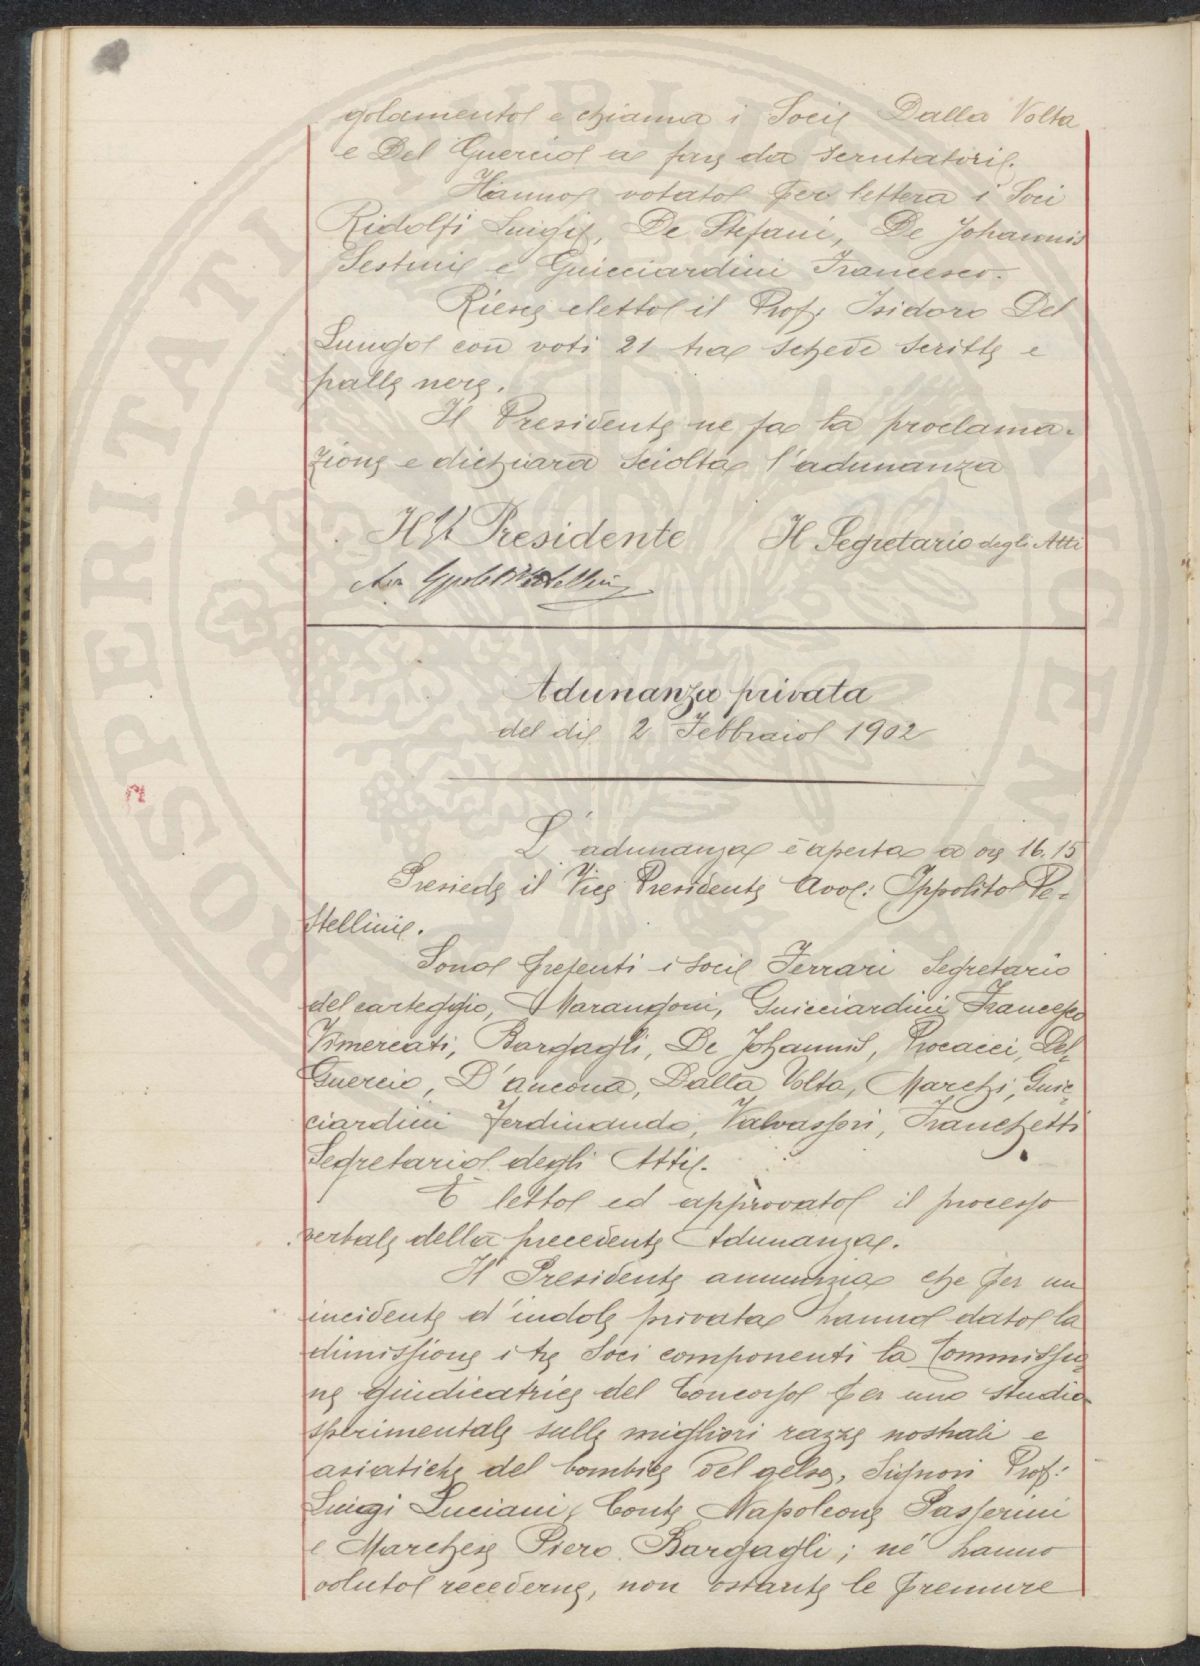 golamento e chiama i Soci Dalla Volta
e Del Guercio a far da scrutatori.
Hanno votato per lettera i Soci
Ridolfi Luigi, De Stefani, De Johannis
Sestini e Guicciardini Francesco.
Riesce eletto il Prof. Isidoro Del
Lungo con voti 21 tra schede scritte e
palle nere.
Il Presidente ne fa la proclama-
zione e dichiara sciolta l'adunanza
Il V. Presidente Il Segretario degli Atti
Adunanza privata
del dì 2 Febbraio 1902
L'adunanza è aperta a ore 16.15
Presiede il Vice Presidente Avv: Ippolito Pe-
stellini.
Sono presenti i soci Ferrari Segretario
del carteggio, Marangoni, Guicciardini Francesco
Vimercati, Bargagli, De Johannis, Procacci, Del
Guercio, D'ancona, Dalla Volta, Marchi, Guic-
ciardini Ferdinando, Valvassori, Franchetti
Segretario degli Atti.
È letto ed approvato il processo
verbale della precedente Adunanza.
Il Presidente annunzia che per un
incidente d'indole privata hanno dato la
dimissione i tre Soci componenti la Commissio-
ne giudicatrice del Concorso per uno studio
sperimentale sulle migliori razze nostrali e
asiatiche del bombice del gelso, Signori Prof:
Luigi Luciani, Conte Napoleone Passerini
e Marchese Piero Bargagli; né hanno
voluto recederne, non ostante le premure
SPERITATI PUBLICAE AUGENDAE PROSPERITATI